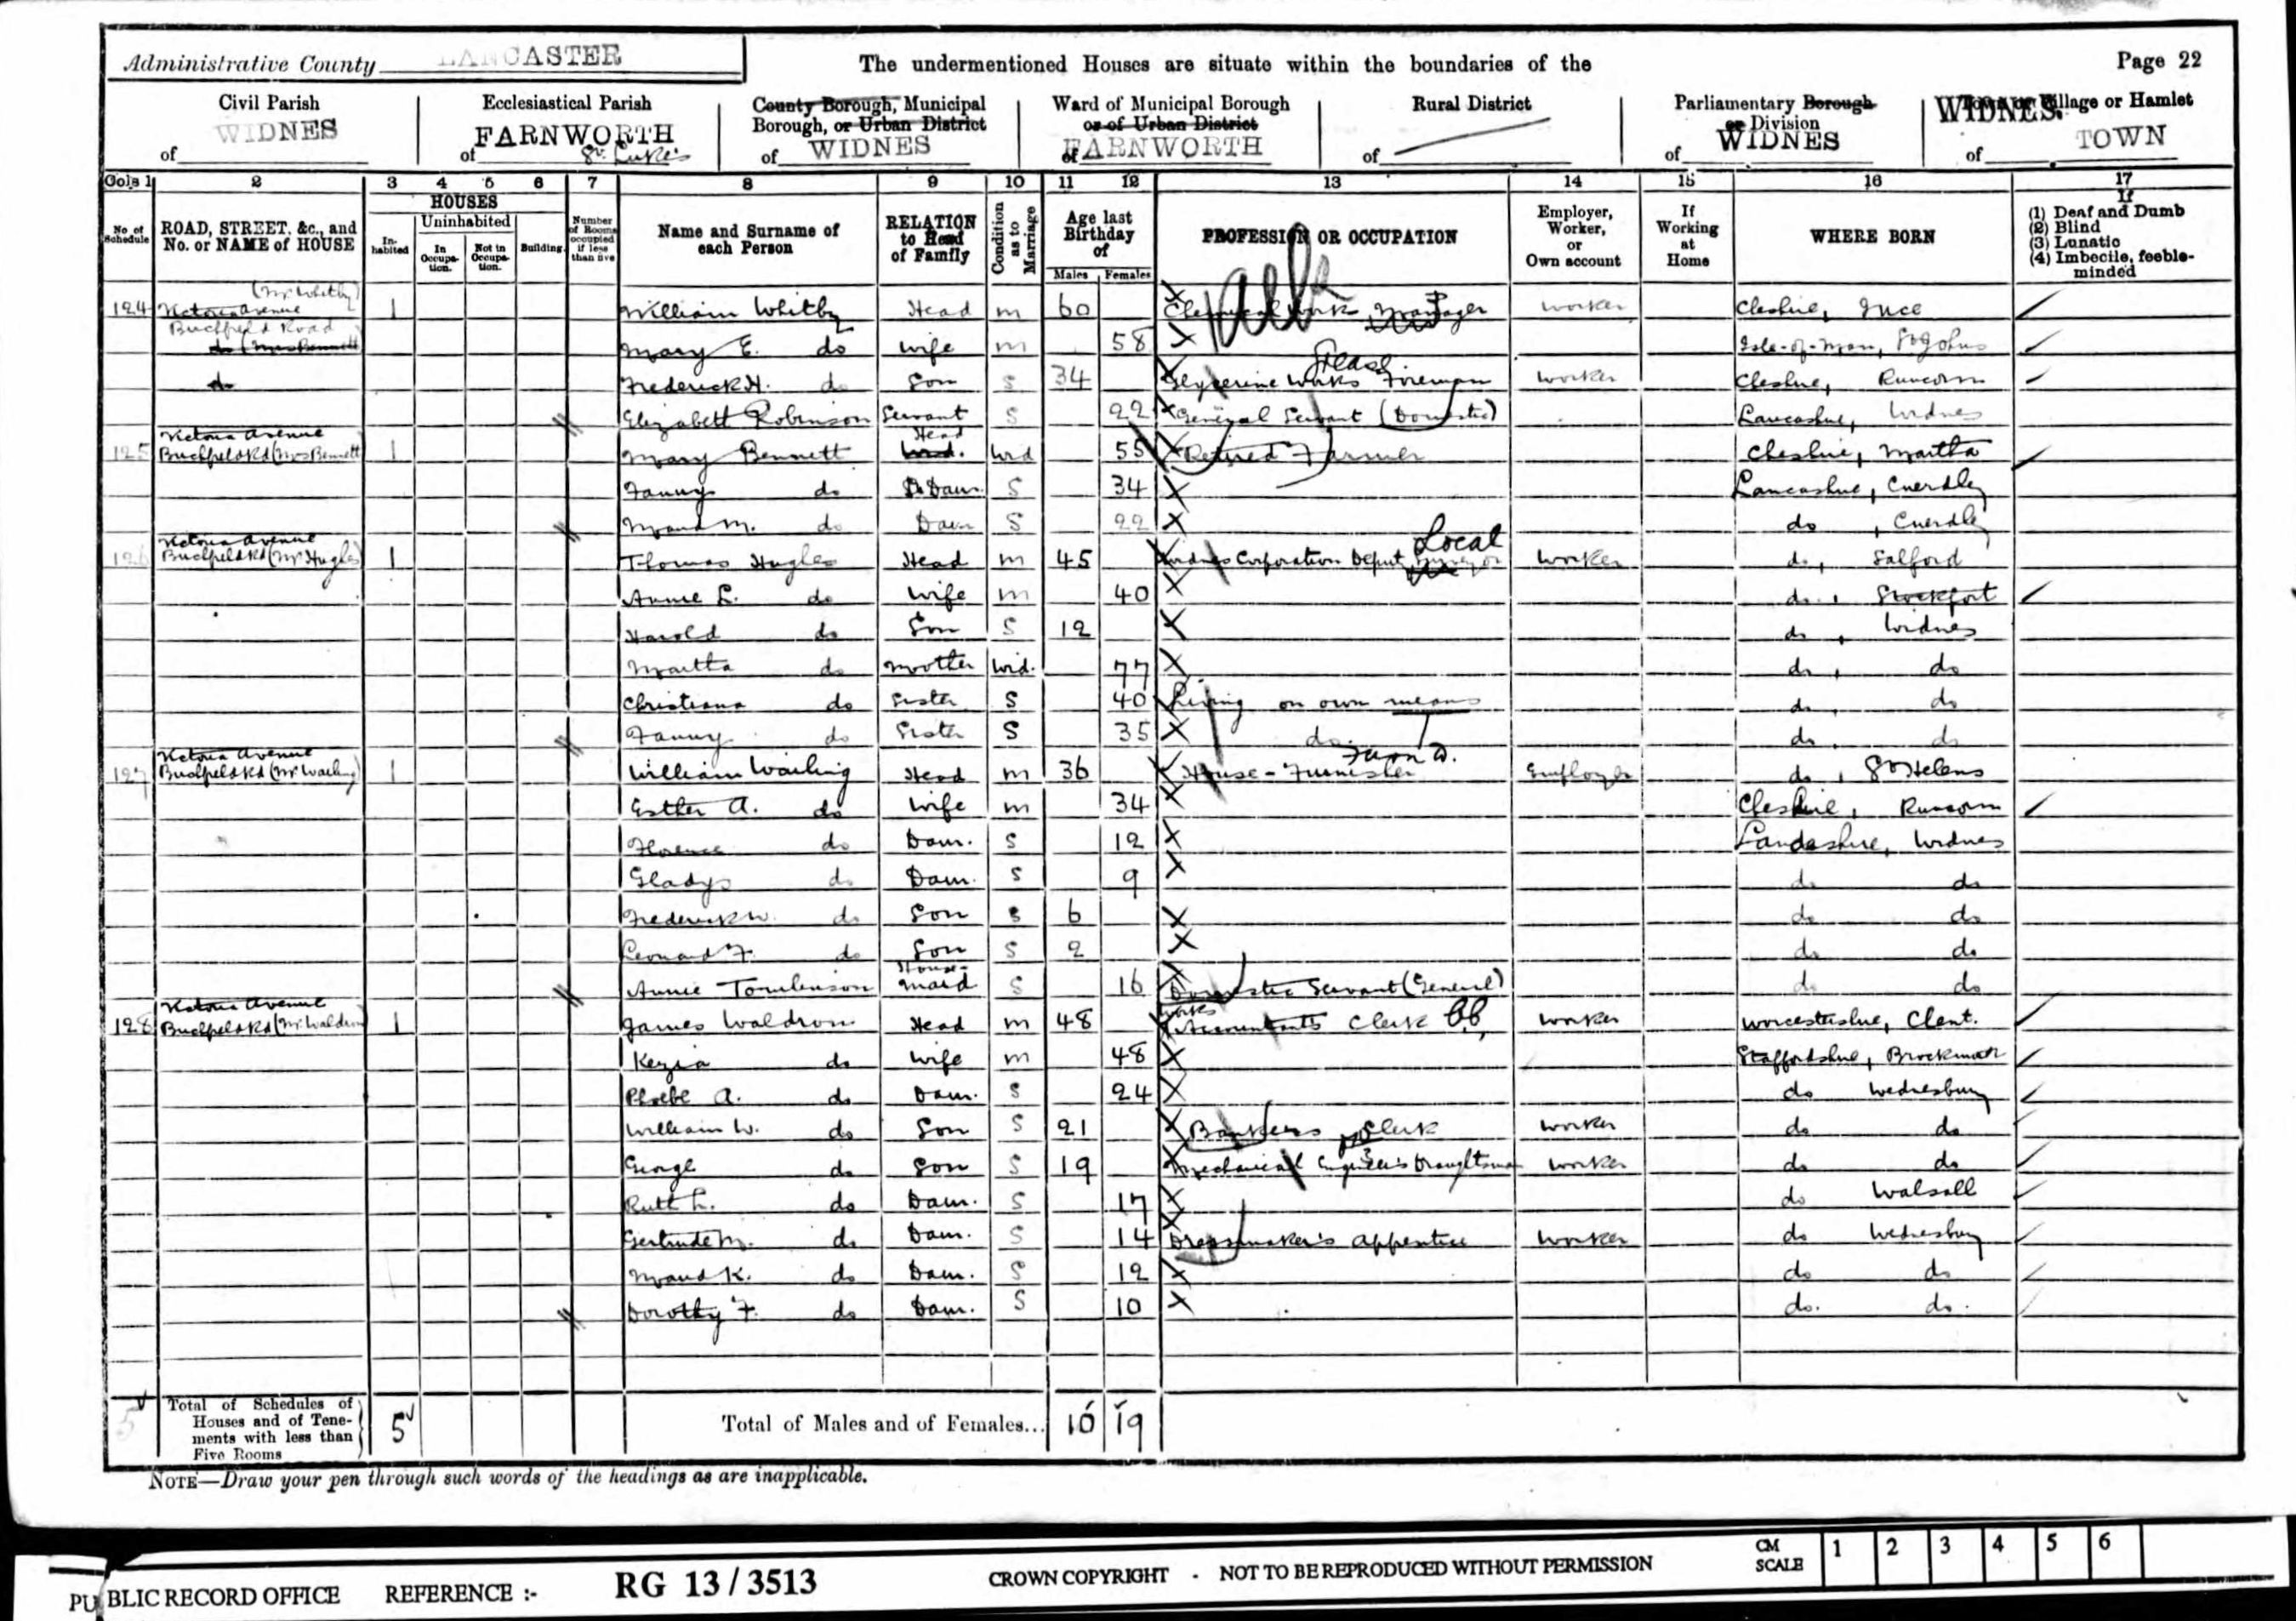 Administrative County LANCASTER
The undermentioned Houses are situate within the boundaries of the
Page 22
Civil Parish of WIDNES
Ecclesiastical Parish of FARNWORTH St. Luke's
County Borough, Municipal Borough, or Urban District of WIDNES
Ward of Municipal Borough or of Urban District of FARNWORTH
Rural District of
Parliamentary Borough or Division of WIDNES
Town or Village or Hamlet of WIDNES. TOWN
Cols 1 2 3 4 5 6 7 8 9 10 11 12 13 14 15 16 17
No. of Schedule
ROAD, STREET, &c., and No. or NAME of HOUSE
HOUSES
Inhabited
Uninhabited
In Occupation.
Not in Occupation.
Building.
Number of Rooms occupied if less than five
Name and Surname of each Person
RELATION to Head of Family
Condition as to Marriage
Age last Birthday of
Males Females
PROFESSION OR OCCUPATION
Employer, Worker, or Own account
If Working at Home
WHERE BORN
If
(1) Deaf and Dumb
(2) Blind
(3) Lunatic
(4) Imbecile, feeble-minded
(Mr Whitby)
124 Victoria Avenue 1 William Whitby Head m 60 Chemical Work Manager worker Cheshire, Ince
Birchfield Road
do (Mrs Bennett Mary E. do wife m 58 Isle-of-Man, St Johns
do Frederick H. do Son S 34 Glycerine Works Foreman worker Cheshire, Runcorn
Elizabeth Robinson Servant S 22 General Servant (Domestic) Lancashire, Widnes
Victoria Avenue
125 Birchfield Rd (Mrs Bennett 1 Mary Bennett Head Wid 55 Retired Farmer Cheshire,
Fanny do Daur S 34 Lancashire, Cuerdley
Maud M. do Daur S 22 do, Cuerdley
Victoria Avenue
126 Birchfield Rd (Mr Hughes) 1 Thomas Hughes Head m 45 Widnes Corporation Deputy Surveyor Local worker do, Salford
Annie L. do wife m 40 do, Stockport
Harold do Son S 12 do, Widnes
Martha do Mother Wid. 77 do, do
Christiana do Sister S 40 Living on own means do, do
Fanny do Sister S 35 do do, do
Victoria Avenue
127 Birchfield Rd (Mr Wailing) 1 William Wailing Head m 36 House-Furnisher Employer do, St Helens
Esther A. do wife m 34 Cheshire, Runcorn
Florence do Daur. S 12 Lancashire, Widnes
Gladys do Daur. S 9 do do
Frederick W. do Son S 6 do do
Leonard F. do Son S 2 do do
Annie Tomlinson House-maid S 16 Domestic Servant (General) do do
Victoria Avenue
128 Birchfield Rd (Mr Waldron 1 James Waldron Head m 48 Works Accountants Clerk worker Worcestershire, Clent.
Kezia do wife m 48 Staffordshire,
Phoebe A. do Daur. S 24 do Wednesbury
William W. do Son S 21 Bankers Clerk worker do do
George do Son S 19 Mechanical Engineer's Draughtsman worker do do
Ruth L. do Daur. S 17 do Walsall
Gertrude M. do Daur. S 14 Dressmaker's Apprentice worker do Wednesbury
Maud K. do Daur. S 12 do do
Dorothy F. do Daur. S 10 do. do.
5 Total of Schedules of Houses and of Tenements with less than Five Rooms 5
Total of Males and of Females... 10 19
NOTE—Draw your pen through such words of the headings as are inapplicable.
PUBLIC RECORD OFFICE REFERENCE :- RG 13 / 3513 CROWN COPYRIGHT - NOT TO BE REPRODUCED WITHOUT PERMISSION
CM SCALE 1 2 3 4 5 6